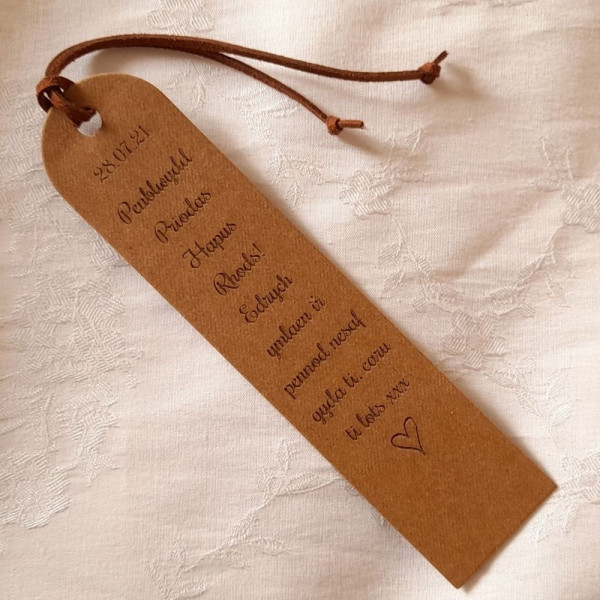 28.07.21
Penblwydd
Priodas
Hapus
Rhods!
Edrych
ymlaen i'r
pennod nesaf
gyda ti. caru
ti lots xxx